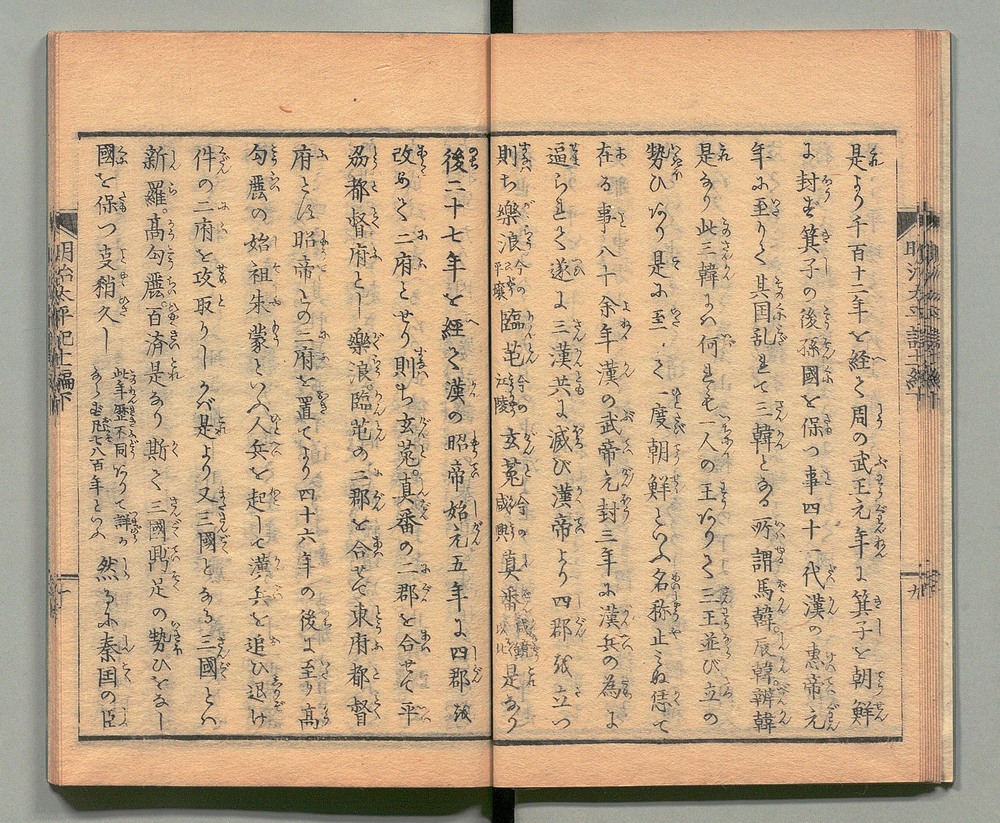 是より千百十二年を経て周の武王元年に箕子を朝鮮
に封ず箕子の後孫國を保つ事四十一代漢の惠帝元
年に至りて其国乱れて三韓となる所謂馬韓辰韓辨韓
是なり此三韓には何れも一人の王ありて三王並び立の
勢ひなり是に至て一度朝鮮といふ名称止みぬ恁て
在る事八十余年漢の武帝元封三年に漢兵の為に
逼られて遂に三漢共に滅び漢帝より四郡を立つ
則ち樂浪今の平壤臨芼今の江陵玄菟今の咸興真番是なり
後二十七年を經て漢の昭帝始元五年に四郡を
改めて二府とせり則ち玄菟真番の二郡を合せて平
刕都督府とし樂浪臨芼の二郡を合せて東府都督
府とす昭帝この二府を置てより四十六年の後に至り高
勾麗の始祖朱蒙といへる人兵を起して漢兵を追ひ退け
件の二府を攻取りしかば是より又三國となる三國とは
新羅高勾麗百済是なり斯て三國鼎足の勢ひをなし
國を保つ事稍久し此年歴不同ありて詳かならず凡七八百年といふ然るに秦国の臣
明治太平記十一編下